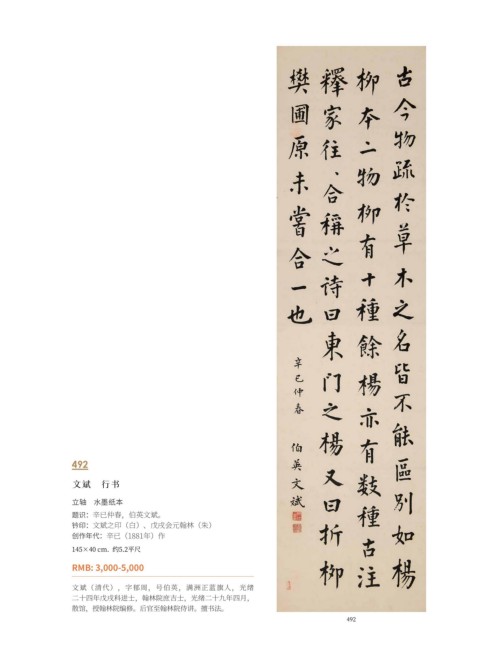 古今物疏於草木之名皆不能區別如楊
柳本二物柳有十種餘楊亦有数種古注
釋家往、合稱之诗曰東门之楊又曰折柳
樊圃原未嘗合一也
辛巳仲春
伯英文斌
492
492
文斌 行书
立轴 水墨纸本
题识：辛巳仲春，伯英文斌。
钤印：文斌之印（白）、戊戌会元翰林（朱）
创作年代：辛巳（1881年）作
145×40 cm. 约5.2平尺
RMB: 3,000-5,000
文斌（清代），字郁周，号伯英，满洲正蓝旗人，光绪
二十四年戊戌科进士，翰林院庶吉士，光绪二十九年四月，
散馆，授翰林院编修。后官至翰林院侍讲。擅书法。